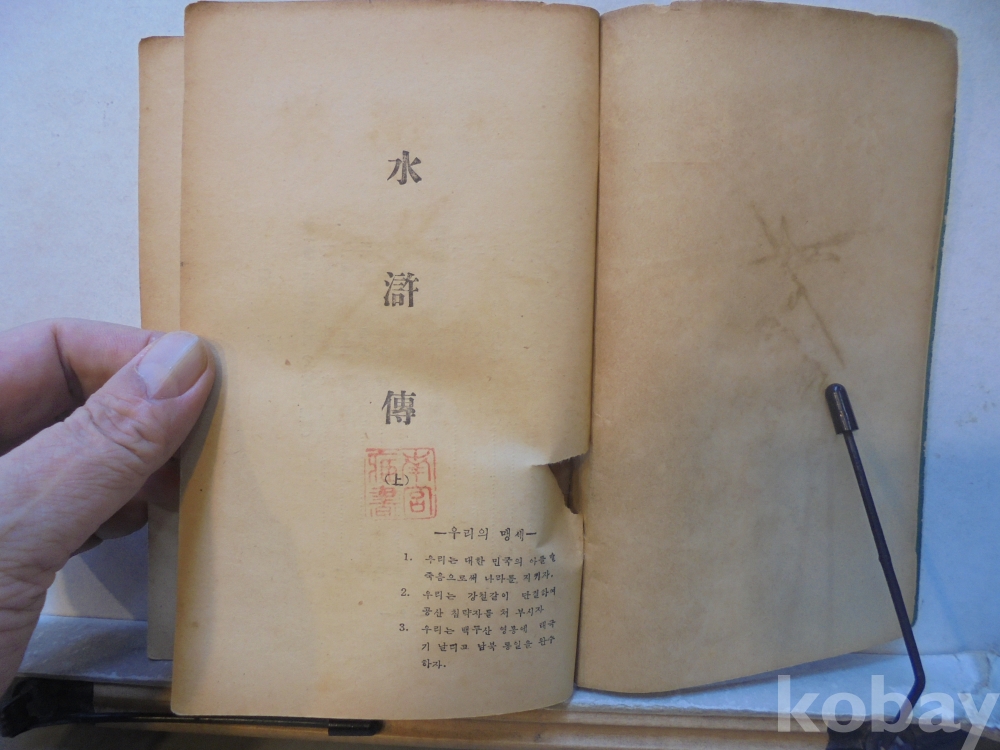 水
滸
傳
(上)
—우리의 맹세—
1. 우리는 대한 민국의 아들 딸
죽음으로써 나라를 지키자.
2. 우리는 강철같이 단결하여
공산 침략자를 쳐 부시자
3. 우리는 백두산 영봉에 태극
기 날리고 남북 통일을 완수
하자.
kobay